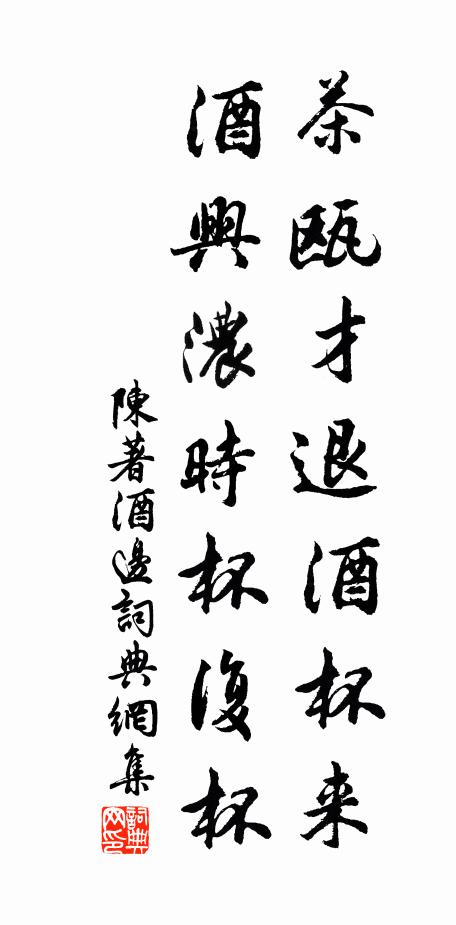 茶甌才退酒杯来
酒興濃時杯復杯
陳著酒邊詞典網集
詞典网印